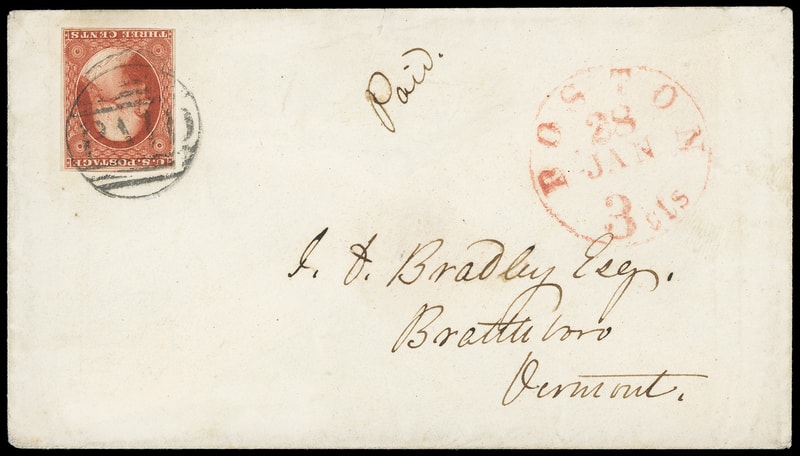 THREE CENTS
U.S. POSTAGE
PAID
Paid.
BOSTON
28
JAN
3 cts
J. D. Bradley Esq.
Brattleboro
Vermont.